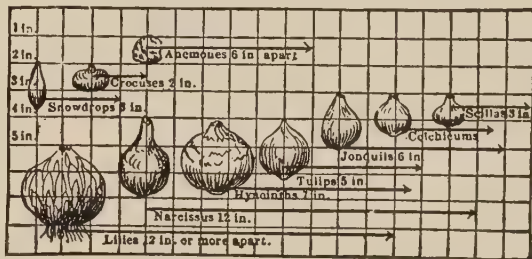 1 in.
2 in.
Anemones 6 in. apart
3 in.
Crocuses 2 in.
4 in.
Snowdrops 3 in.
Scillas 3 in.
Colchicums
5 in.
Jonquils 6 in
Tulips 5 in
Hyacinths 7 in.
Narcissus 12 in.
Lilies 12 in. or more apart.